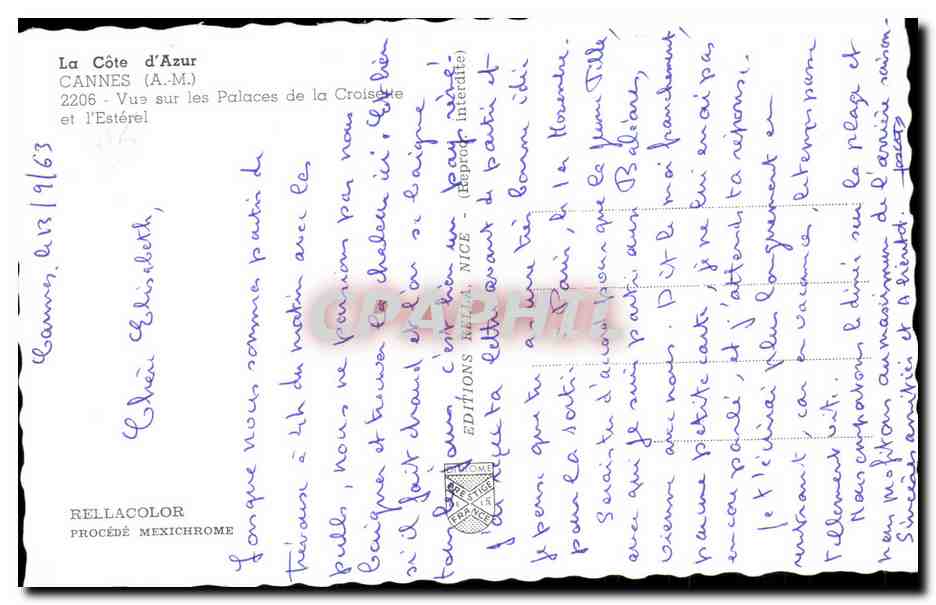 La Côte d'Azur
CANNES (A.-M.)
2206 - Vue sur les Palaces de la Croisette
et l'Estérel
Cannes, le 13/9/63
Chère Elisabeth,
Lorsque nous sommes partis de
à 4h du matin avec les
pulls, nous ne pensions pas nous
baigner et trouver la chaleur ici. Eh bien
si il fait chaud et l'on se baigne
tous les jours c'est bien un pays rêvé!
J'ai reçu ta lettre avant de partir et
je pense que tu as une très bonne idée
pour la sortie. Paris, le
Serais-tu d'accord pour que la jeune fille
avec qui je suis partie aux Baléares,
vienne avec nous. Dis le moi franchement
par une petite carte, je ne lui en ai pas
encore parlé, et j'attends ta réponse.
Je t'écrirai plus longuement en
rentrant, car en vacances, le temps passe
tellement vite.
Nous comptons dîner sur la plage et
nous profitons au maximum de l'arrière saison.
Sincères amitiés et à bientôt.
EDITIONS RELLA, NICE - (Reproc. Interdite)
DIPLOME
PRESTIGE
FRANCE
RELLACOLOR
PROCÉDÉ MEXICHROME
CPAPHIL